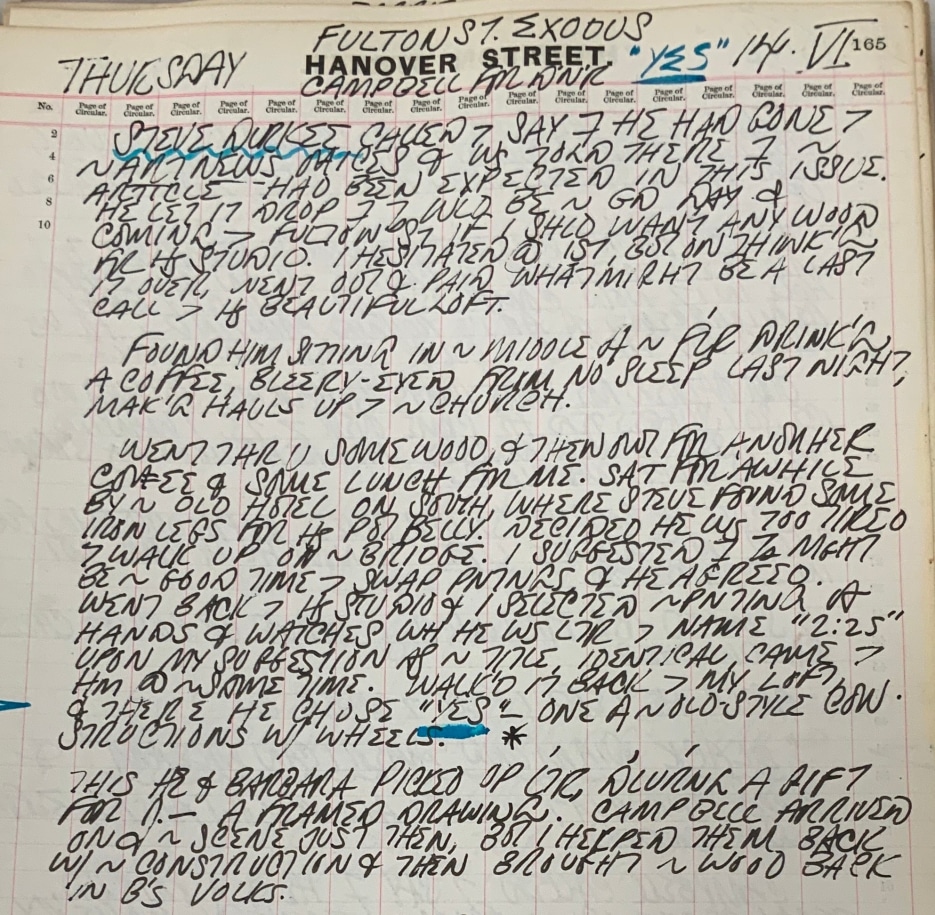 FULTON ST. EXODUS
THURSDAY HANOVER STREET. "YES" 14. VI 165
CAMPBELL FOR DNR
No. Page of Circular. Page of Circular. Page of Circular. Page of Circular. Page of Circular. Page of Circular. Page of Circular. Page of Circular. Page of Circular. Page of Circular. Page of Circular. Page of Circular. Page of Circular. Page of Circular. Page of Circular.
2 STEVE DURKEE CALLED > SAY 7 HE HAD GONE >
4 ~ ARTNEWS OFFICES & WS TOLD THERE 7 ~
6 ARTICLE HAD BEEN EXPECTED IN THIS ISSUE.
8 HE LET IT DROP 7 7 WLD BE ~ GD DAY &
10 COMING > FULTON ST IF I SHLD WANT ANY WOOD
FR HS STUDIO. I HESITATED @ 1ST, BUT ON THINK'G
IT OVER, WENT OUT & PAID WHAT MIGHT BE A LAST
CALL > HS BEAUTIFUL LOFT.
FOUND HM SITTING IN ~ MIDDLE OF ~ FLR DRINK'G
A COFFEE, BLEERY-EYED FROM NO SLEEP LAST NIGHT,
MAK'G HAULS UP > ~ CHURCH.
WENT THRU SOME WOOD, & THEN OUT FOR ANOTHER
COFFEE & SOME LUNCH FOR ME. SAT FOR AWHILE
BY ~ OLD HOTEL ON SOUTH, WHERE STEVE FOUND SOME
IRON LEGS FOR HS POT BELLY. DECIDED HE WS TOO TIRED
> WALK UP ON ~ BRIDGE. I SUGGESTED 7 MGHT
BE ~ GOOD TIME > SWAP PNTNGS & HE AGREED.
WENT BACK > HS STUDIO & I SELECTED ~ PNTING OF
HANDS & WATCHES WH HE WS LTR > NAME "2:25"
UPON MY SUGGESTION OF ~ TITLE, IDENTICAL, CAME >
HM @ ~ SAME TIME. WALK'D IT BACK > MY LOFT,
& THERE HE CHOSE "YES" – ONE A ~ OLD-STYLE CON-
STRUCTIONS W/ WHEELS. *
THIS HE & BARBARA PICKED UP LTR, A GIFT
FOR — A FRAMED DRAWING. CAMPBELL ARRIVED
ON ~ SCENE JUST THEN, BUT I HELPED THEM BACK
W/ ~ CONSTRUCTION & THEN BROUGHT ~ WOOD BACK
IN B'S VOLKS.